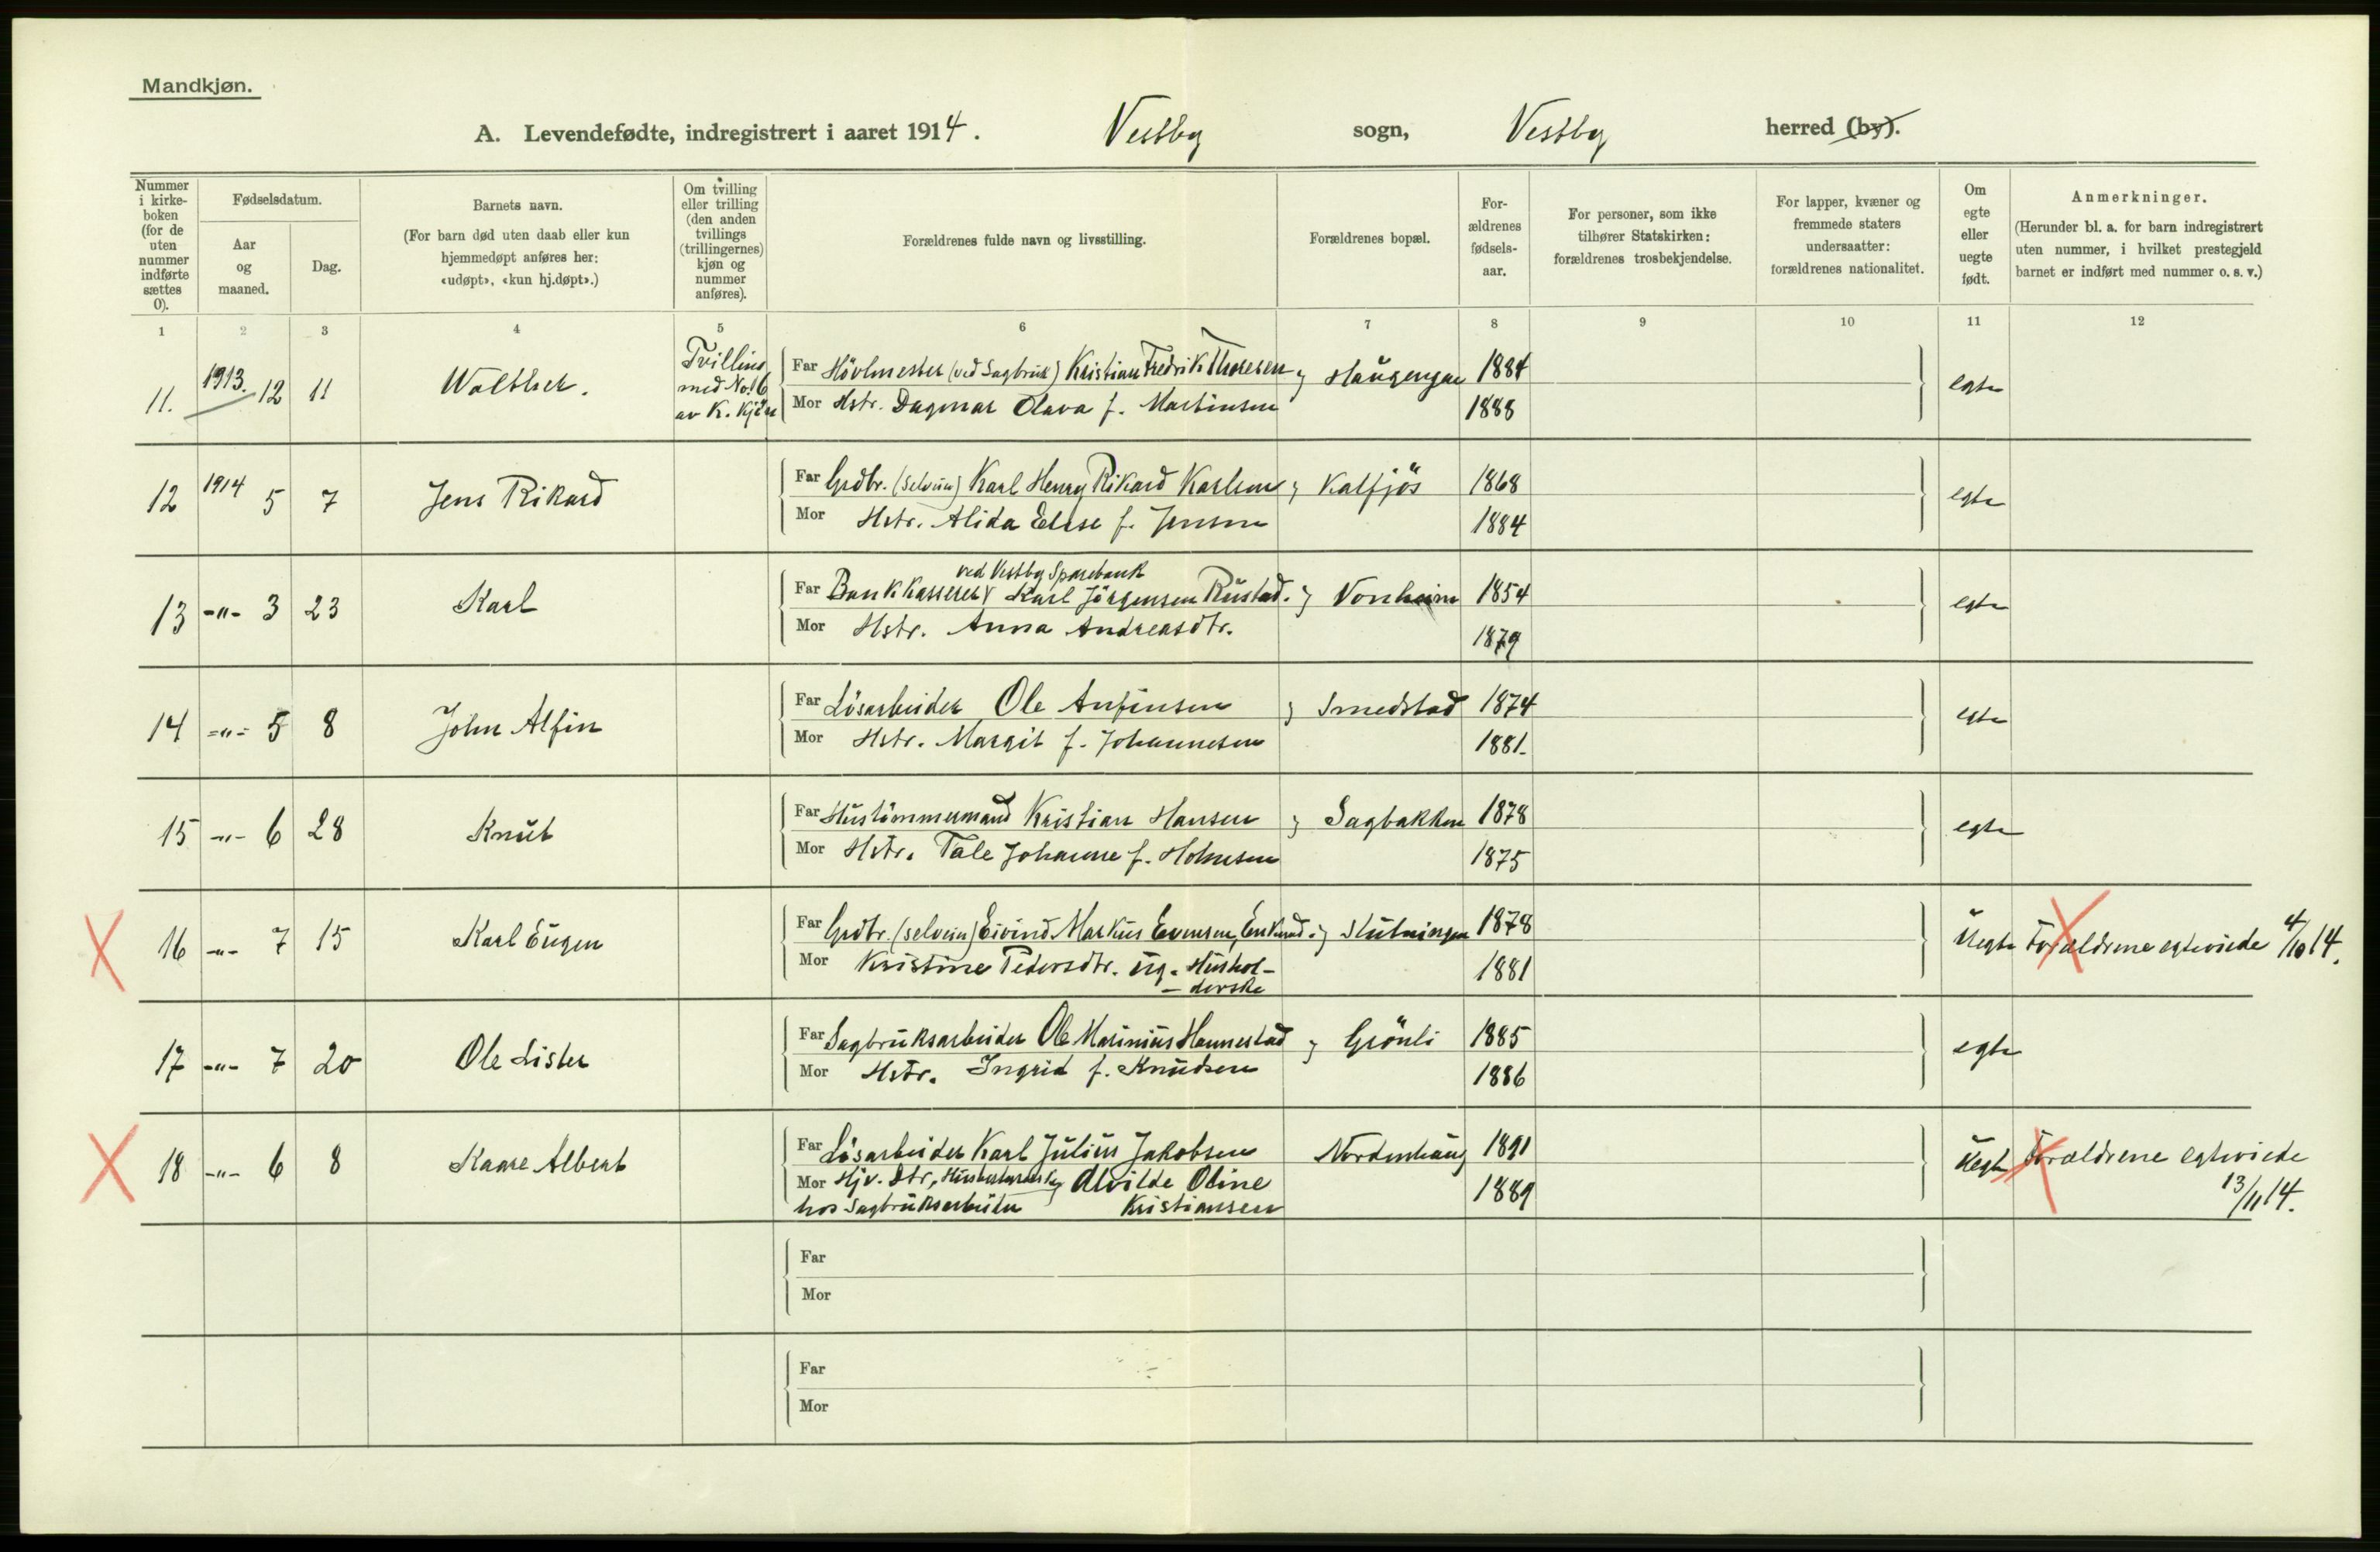 Mandkjøn.
A. Levendefødte, indregistrert i aaret 1914. Vestby sogn, Vestby herred (by).
Nummer i kirkeboken (for de uten nummer indførte sættes 0).
Fødselsdatum.
Aar og maaned.
Dag.
Barnets navn.
(For barn død uten daab eller kun hjemmedøpt anføres her: «udøpt», «kun hj.døpt».)
Om tvilling eller trilling (den anden tvillings (trillingernes) kjøn og nummer anføres).
Forældrenes fulde navn og livsstilling.
Forældrenes bopæl.
Forældrenes fødselsaar.
For personer, som ikke tilhører Statskirken: forældrenes trosbekjendelse.
For lapper, kvæner og fremmede staters undersaatter: forældrenes nationalitet.
Om egte eller uegte født.
Anmerkninger.
(Herunder bl. a. for barn indregistrert uten nummer, i hvilket prestegjeld barnet er indført med nummer o. s. v.)
1 2 3 4 5 6 7 8 9 10 11 12
11. 1913. 12 11 Walther. Tvilling med No. 6 av K. Kjön Far Hövlmester (ved Sagbruk) Kristian Fredrik Thoresen, Haugengen 1884 egte
Mor Hstr. Dagmar Olava f. Martinsen 1888
12 1914 5 7 Jens Rikard Far Grdbr. (selveier) Karl Henry Rikard Karlsen, Kalfjös 1868 egte
Mor Hstr. Alida Elise f. Jensen 1884
ved Vestby Sparebank
13 -"- 3 23 Karl Far Bankkasserer Karl Jörgensen Rustad. Vonheim 1854 egte
Mor Hstr. Anna Andreasdtr. 1879
14 -"- 5 8 John Alfin Far Lösarbeider Ole Anfinsen Smedstad 1874 egte
Mor Hstr. Margit f. Johannesen 1881.
15 -"- 6 28 Knut Far Hustömmermand Kristian Hansen Sagbakken 1878 egte
Mor Hstr. Tale Johanne f. Holmsen 1875
16 -"- 7 15 Karl Eugen Far Grdbr. (selveier) Eivind Markus Evensen, Enkmd. Slutningen 1878 Uegte Forældrene egteviede 4/10 14.
Mor Kristine Pedersdtr. ug. Hushol- 1881
- derske
17 -"- 7 20 Ole Lister Far Sagbruksarbeider Ole Marinius Hennestad Grönli 1885 egte
Mor Hstr. Ingrid f. Knudsen 1886
18 -"- 6 8 Kaare Albert Far Lösarbeider Karl Julius Jakobsen Nordenhaug 1891 Uegte Forældrene egteviede
Mor Hjv. Dtr, Husholderske Alvilde Oline 1889 13/11 14.
hos Sagbruksarbeider Kristiansen
Far
Mor
Far
Mor